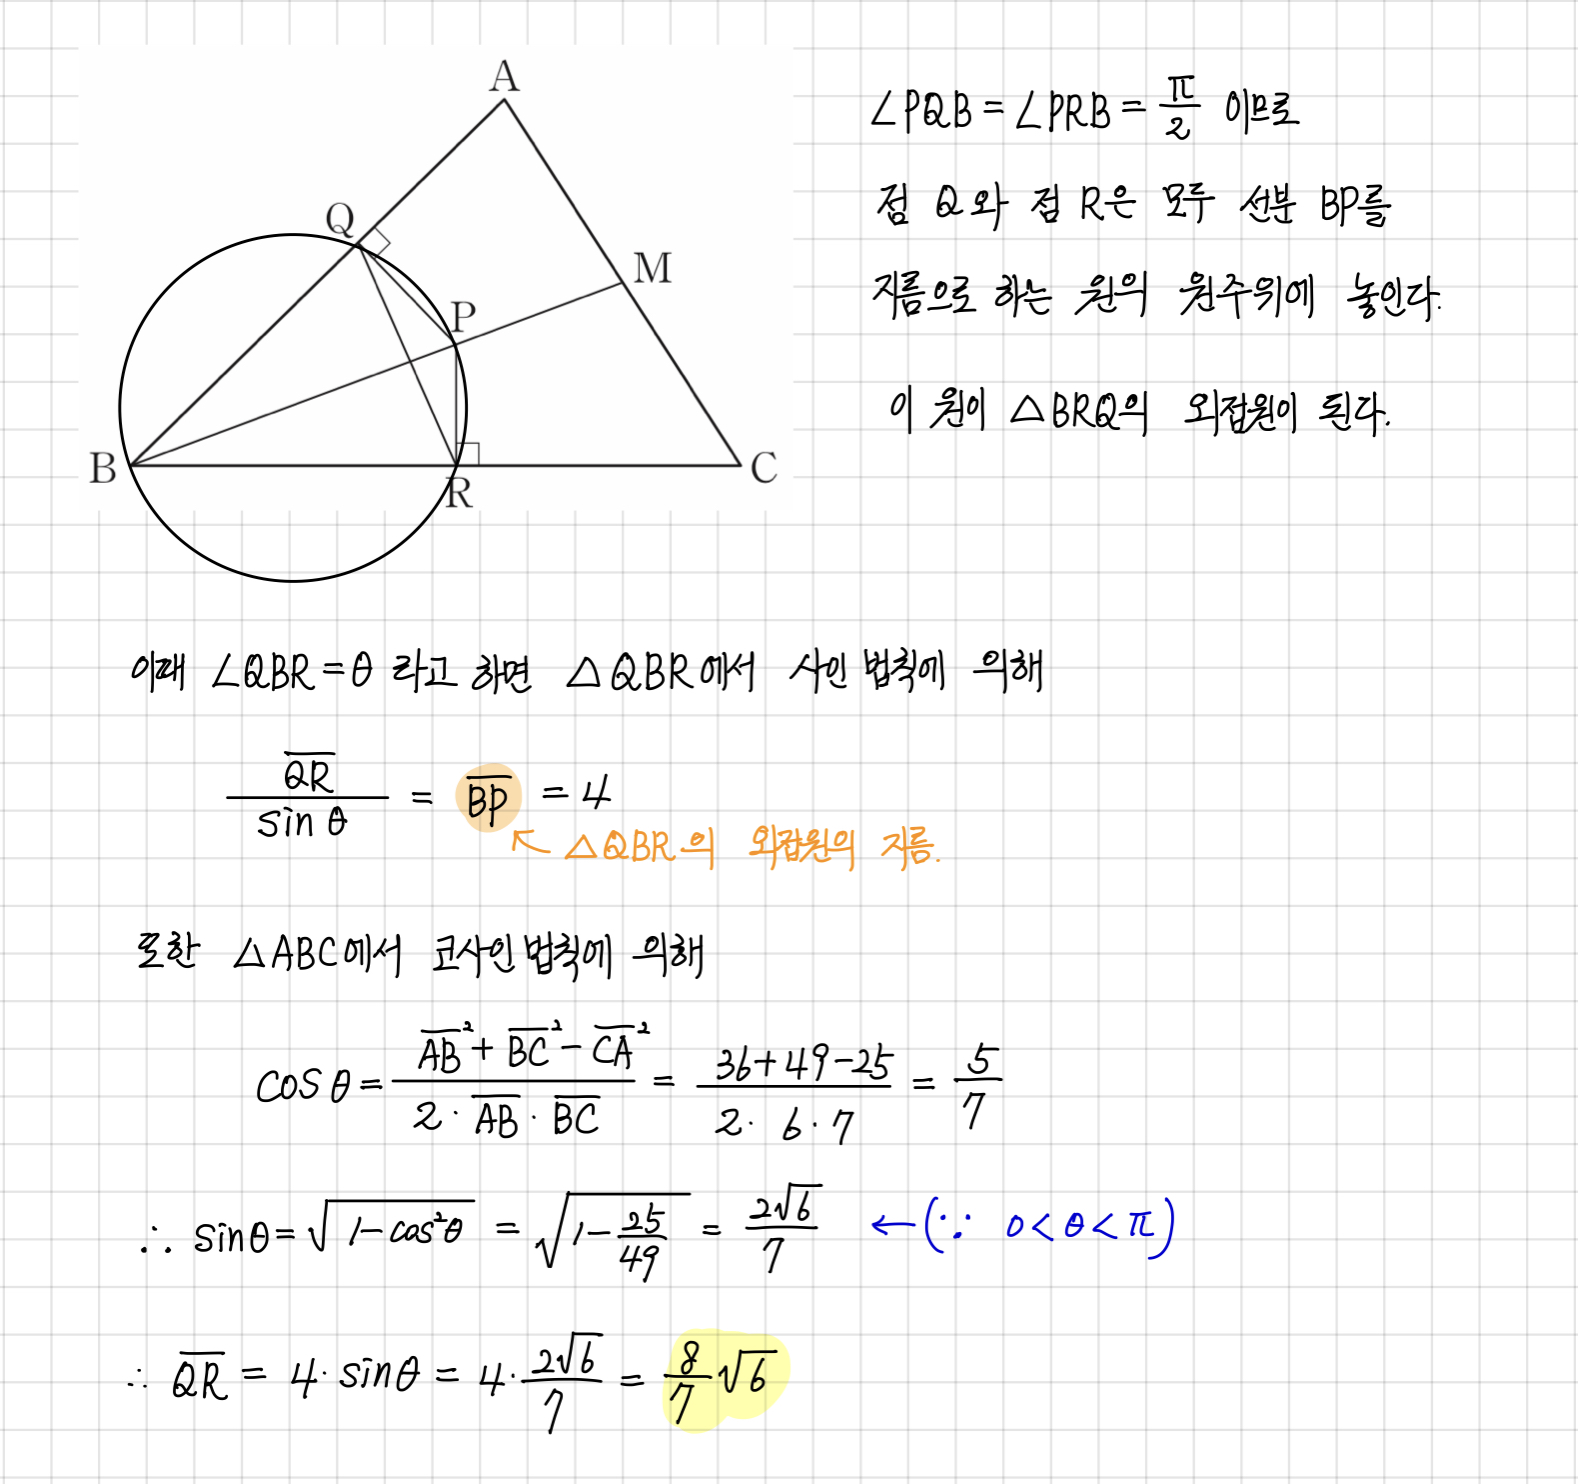 A
Q
M
P
B
R
C
∠PQB = ∠PRB = π/2 이므로
점 Q와 점 R은 모두 선분 BP를
지름으로 하는 원의 원주위에 놓인다.
이 원이 △BRQ의 외접원이 된다.
이때 ∠QBR = θ 라고 하면 △QBR에서 사인 법칙에 의해
\frac{\overline{QR}}{sin θ} = \overline{BP} = 4
← △QBR의 외접원의 지름.
또한 △ABC에서 코사인 법칙에 의해
cos θ = \frac{\overline{AB}² + \overline{BC}² - \overline{CA}²}{2 · \overline{AB} · \overline{BC}} = \frac{36+49-25}{2 · 6 · 7} = \frac{5}{7}
∴ sinθ = \sqrt{1-cos²θ} = \sqrt{1-\frac{25}{49}} = \frac{2√6}{7} ← (∵ 0<θ<π)
∴ \overline{QR} = 4 · sinθ = 4 · \frac{2√6}{7} = \frac{8}{7}√6